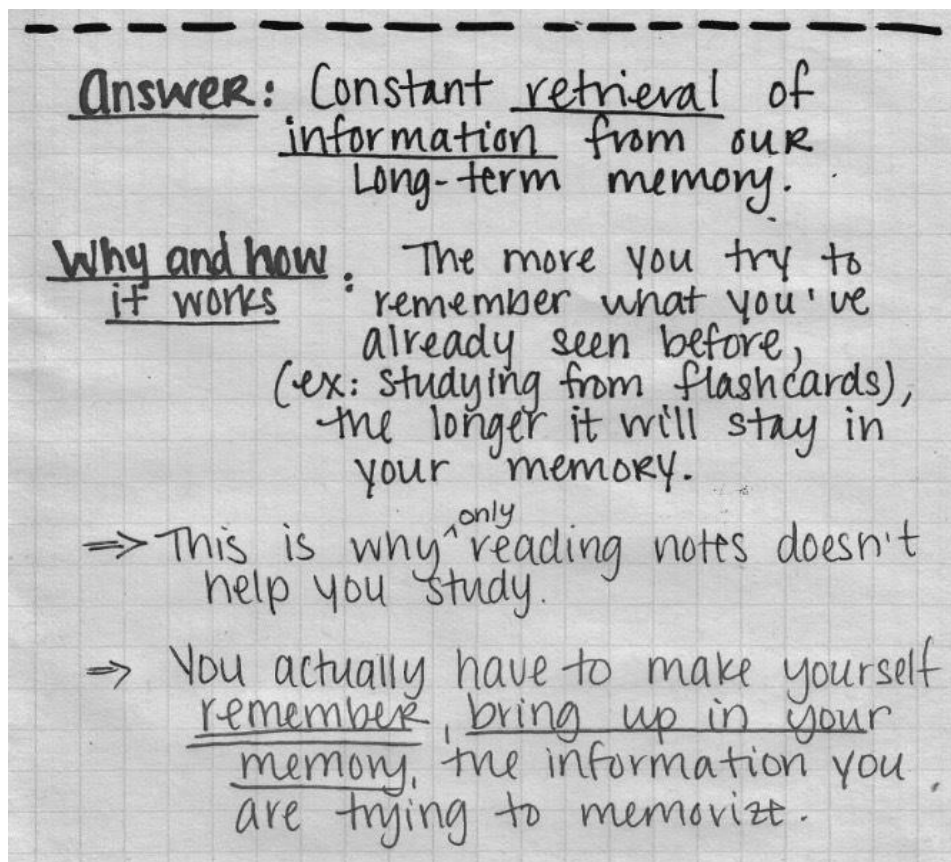 Answer: Constant retrieval of
information from our
Long-term memory.
Why and how
it works : The more you try to
remember what you've
already seen before,
(ex: studying from flashcards),
the longer it will stay in
your memory.
⇒ This is why ^only reading notes doesn't
help you study.
⇒ You actually have to make yourself
remember, bring up in your
memory, the information you
are trying to memorize.